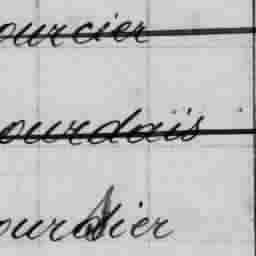 ourcier
ourdaïs
ourdier